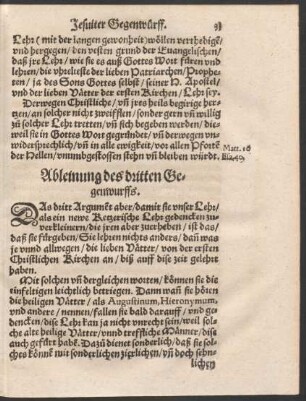 Jesuiter Gegenwürff. 9
Lehr (mit der langen gewonheit) wöllen verthedigē/
vnd hergegen/ den vesten grund der Euangelischen/
daß jre Lehr/ wie sie es auß Gottes Wort füren vnd
lehrten/ die vhrelteste der lieben Patriarchen/ Prophe-
ten/ ja des Sons Gottes selbst/ seiner H. Apostel/
vnd der lieben Vätter der ersten Kirchen/ Lehr sey.
Derwegen Christliche/ vñ jres heils begirige her-
tzen/ an solcher nicht zweifflen/ sonder gern vñ willig
zů solcher Lehr tretten/ vñ sich begeben werden/ die-
weil sie in Gottes Wort gegründet/ vñ derwegen vn-
widersprechlich/ vñ in alle ewigkeit/ vor allen Pfortē
der Hellen/ vnumbgestossen stehn vñ bleiben würdt.
Matt. 16
Esa. 40.
Ableinung des dritten Ge-
genwurffs.
Das drit Argumēt aber/ damit sie vnser Lehr/
als ein newe Ketzerische Lehr gedencken zu
verkleinern/ die jren aber zuerheben/ ist das/
daß sie fürgeben/ Sie lehren nichts anders/ dañ was
je vnnd allwegen/ die lieben Vätter/ von der ersten
Christlichen Kirchen an/ biß auff dise zeit gelehrt
haben.
Mit solchen vñ dergleichen worten/ können sie die
einfeltigen leichtlich betriegen. Dann wañ sie hören
die heiligen Vätter/ als Augustinum, Hieronymum,
vnd andere/ nennen/ fallen sie bald darauff/ vnd ge-
dencken/ dise Lehr kan ja nicht vnrecht sein/ weil sol-
che alte heilige Vätter/ vnnd treffliche Männer/ dise
auch gefürt habē. Dazů dienet sonderlich/ daß sie sol-
ches könnē mit sonderlichen zierlichen/ vñ doch sehn-
lichen